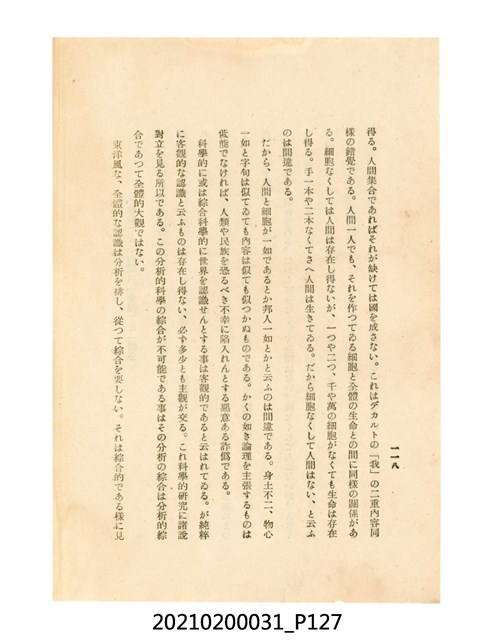 一一八
得る。人間集合であればそれが缺けては國を成さない。これはデカルトの「我」の二重內容同
樣の錯覺である。人間一人でも、それを作つてゐる細胞と全體の生命との間に同樣の關係があ
る。細胞なくしては人間は存在し得ないが、一つや二つ、千や萬の細胞がなくても生命は存在
し得る。手一本や二本なくてさへ人間は生きてゐる。だから細胞なくして人間はない、と云ふ
のは間違である。
だから、人間と細胞が一如であるとか邦人一如とかと云ふのは間違である。身土不二、物心
一如と字句は似てゐても內容は似ても似つかぬものである。かくの如き論理を主張するものは
低能でなければ、人類や民族を恐るべき不幸に陷入れんとする惡意ある詐僞である。
科學的に或は綜合科學的に世界を認識せんとする事は客觀的であると云はれてゐる。が純粹
に客觀的な認識と云ふものは存在し得ない、必ず多少とも主觀が交る。これ科學的硏究に諸說
對立を見る所以である。この分析的科學の綜合が不可能である事はその分析の綜合は分析的綜
合であつて全體的大觀ではない。
東洋風な、全體的な認識は分析を排し、從つて綜合を要しない。それは綜合的である樣に見
20210200031_P127